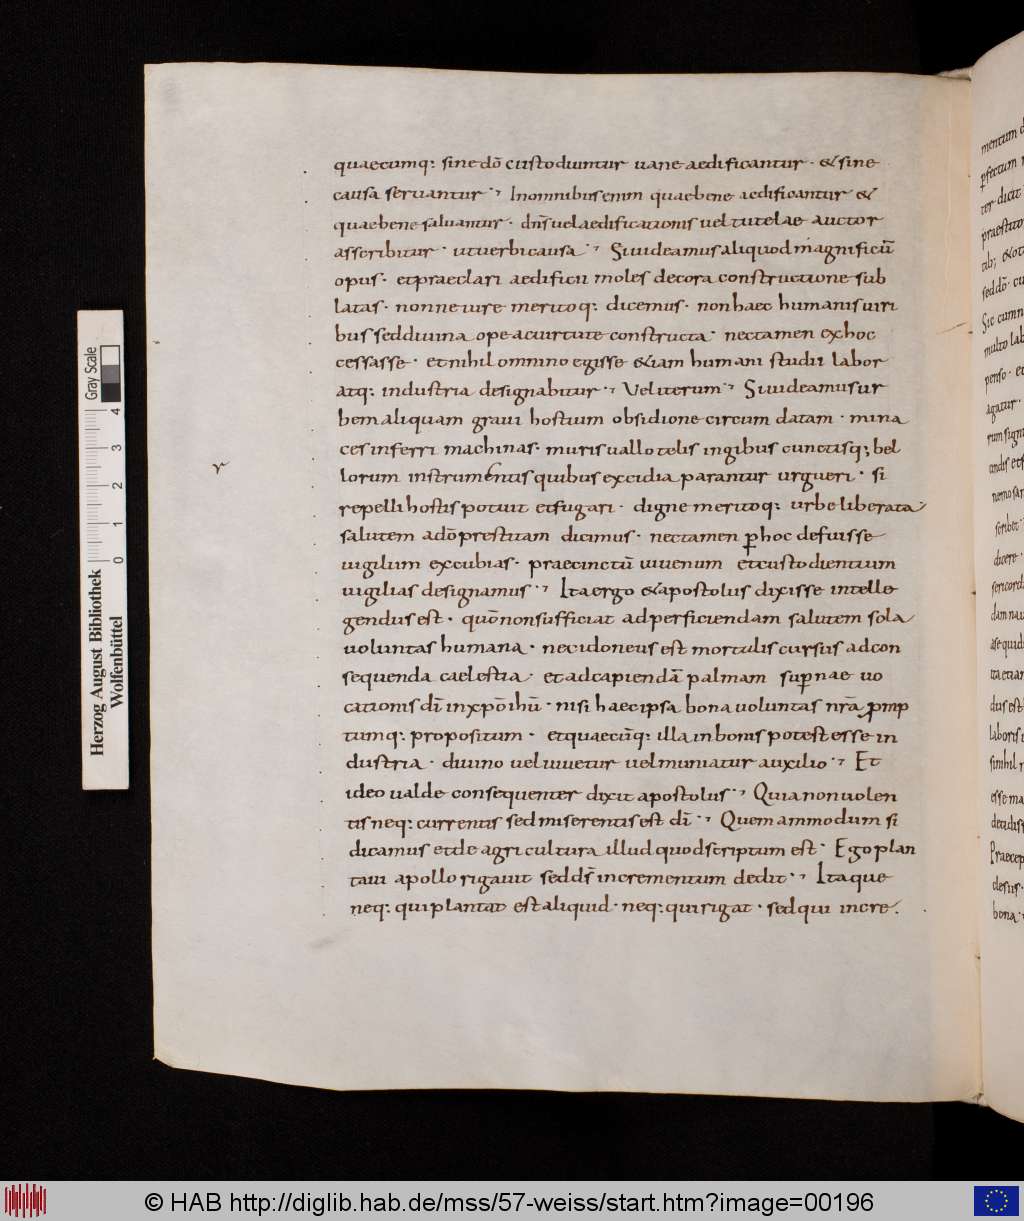 quaecumq: sine dō custodiuntur uane aedificantur · & sine
causa seruantur · In omnibus enim quae bene aedificantur &
quae bene saluantur · dn̄s uel aedificationis uel tutelae auctor
asscribitur · ut uerbi causa · Si uideamus aliquod magnificū
opus · et praeclari aedificii moles decora constructione sub
latas · nonne iure meritoq: dicemus · non haec humanis uiri
bus sed diuina ope ac uirtute constructa · nec tamen ex hoc
cessasse · et nihil omnino egisse &iam humani studii labor
atq: industria designabitur · Vel iterum · Si uideamus ur
bem aliquam graui hostium obsidione circumdatam · mina
ces inferri machinas · muris uallo telis ingibus cunctisq; bel
lorum instrumentis quibus excidia parantur urgueri · si
repelli hostis potuit et fugari · digne meritoq: urbe liberata
salutem a dō prestitam dicimus · nec tamen p̱ hoc defuisse
uigilum excubias · praecinctū iuuenum et custodientium
uigilias designamus · Ita ergo & apostolus dixisse intelle
gendus est · quō non sufficiat ad perficiendam salutem sola
uoluntas humana · nec idoneus est mortalis cursus ad con
sequenda caelestia · et ad capiendā palmam sup̱nae uo
cationis dī in xp̄o ihū · nisi haec ipsa bona uoluntas nr̄a p̱mp
tumq: propositum · et quaecūq: illa in bonis potest esse in
dustria · diuino uel iuuetur uel muniatur auxilio · Et
ideo ualde consequenter dixit apostolus · Quia non uolen
tis neq: currentis sed miserentis est dī · Quem ammodum si
dicamus et de agri cultura illud quod scriptum est · Ego plan
taui apollo rigauit sed ds̄ incrementum dedit · Itaque
neq: qui plantat est aliquid · neq: qui rigat · sed qui incre
r
mentum
ter dicit
praestito
sed dō · cu
Sic cum n
multo lab
penso · et
agatur ·
rum sign
andis et
nemo sa
scribet
dicere ·
ita etiam
dus est
laboris
esse ma
decidiss
Praecep
desus ·
bona ·
Gray Scale
0 1 2 3 4
Herzog August Bibliothek
Wolfenbüttel
© HAB http://diglib.hab.de/mss/57-weiss/start.htm?image=00196